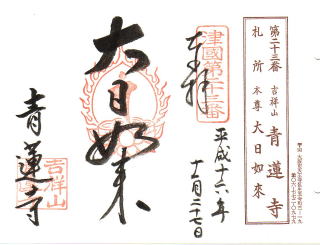 第二十三番
吉祥山 青蓮寺
札所本尊 大日如來
奉拝
津國第二十三番
平成十六年
十一月二十七日
大日如来
青蓮寺
吉祥山